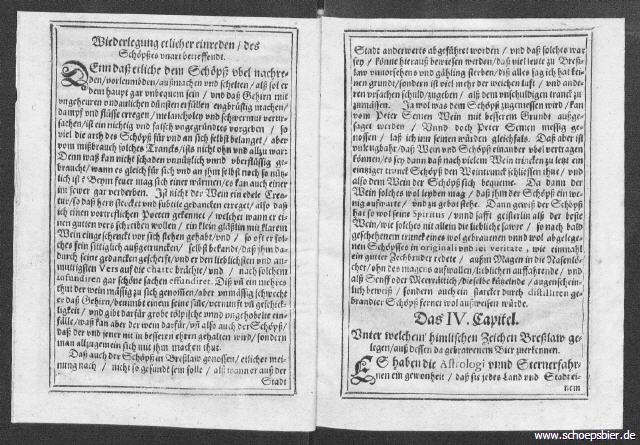 Wiederlegung etlicher einreden / des
Schöpßes vnart betreffendt.
DEnn daß etliche dem Schöpß vbel nachre-
den / vorleumden / außmachen vnd schelten / als sol er
dem haupt gar vnbequem sein / vnd daß Gehirn mit
vngeheuren vndaulichen dünsten erfüllen engbrüstig machen /
dampf vnd flüsse erregen / melancholey vnd schwermut verur-
sachen / ist ein nichtig vnd falsch vorgegründtes vorgeben / so
viel die arth des Schöpß für vnd an sich selbst belanget / aber
vom mißbrauch solches Trancks / ists nicht ohn vnd allzu war:
Denn waß kan nicht schaden vnnützlich vnnd vberflüssig ge-
braucht / wann es gleich für sich vnd an ihm selbst noch so nütz-
lich ist? Beym feuer mag sich einer wärmen / es kan auch einer
im feuer gar verderben. Ist nicht der Wein ein edele Crea-
tur / so daß hertz stercket vnd subtile gedancken erreget / also daß
ich einen vortreflichen Poeten gekennet / welcher wann er ei-
nen gutten vers schreiben wollen / ein klein gläßlin mit klarem
Wein eingeschenckt vor sich stehen gehabt / vnd / so oft er sol-
ches fein sittiglich außgetruncken / selbst befandt / daß ihm da-
durch seine gedancken gescherft / vnd er den lieblichsten vnd an-
muttigsten Vers auf die charte brächte / vnd / nach solchem
infundiren gar schöne sachen effundiret. Diß vnd ein mehres
thut der wein mässig zu sich genossen / aber vnmässig schwecht
er daß Gehirn / benimbt einem seine süsse / vernunft vnd geschick-
ligkeit / vnd gibt dafür grobe tölpische vnnd vngehobele ein-
fälle / waß kan aber der wein darfür / vnd also auch der Schöpß /
daß der vnd jener mit in besseren ehren gehalten wird / sondern
man allzugemein sich mit ihm machen thut.
Daß auch der Schöpß in Breßlaw genossen / etlicher mei-
nung nach / nicht so gesundt sein solle / alß wann er auß der
Stadt
Stadt anderwerts abgeführet worden / vnd daß solches war
sey / könne hierauß bewiesen werden / daß viel leute zu Breß-
law vnvorsehens vnd gähling sterben / diß alles sag ich hat kei-
nen grund / sondern ist viel mehr der weichen luft / vnd ande-
ren vrsachen schuld / zugeben / alß dem vnschuldigen tranck zu
zumässen. Ja wol waß dem Schöpß zugemessen wird / kan
vom Peter Semen Wein mit besserem Grunde außge-
saget werden / Vnnd doch Peter Semen messig ge-
nossen / laß ich im seinen würden gleichfals. Daß aber ist
vnleugbahr / daß Wein vnd Schöpß einander vbel vertragen
können / es sey dann daß nach vielem Wein trincken zu letzt ein
einziger trunck Schöpß den Weintrunck schliessen thut / vnd
also dem Wein der Schöpß sich bequeme. Da dann der
Wein solches wol leyden mag / daß ihm der Schöpß ein we-
nig aufwarte / vnd zu gebot stehe. Dann gewiß der Schöpß
hat so wol seine Spiritus / vnnd saffi geisterlin alß der beste
Wein / wie solches nit allein die liebliche säwre / so nach bald
geschehenem trunck eines wol gebrauenen vnnd wol abgelege-
nen Schöpßes in originali vnd ist veritate, wie einmahl
ein gutter Zechbruder redete / außm Magen in die Nasenlö-
cher / ohn des magens aufwallen / lieblichen auffahrende / vnd
alß Senff oder Meerrättich / dieselbe kützelnde / augenschein-
lich beweißt / sondern auch ein starcker durch distilliren ge-
brandter Schöpß ferner wol außweisen würde.
Das IV. Capitel.
Vnter welchem himlischen Zeichen Breßlaw ge-
legen / auß dessen da gebrawenem Bier zuerkennen.
ES haben die Astrologi vnnd Sternerfahr-
nen ein gewonheit / daß sie jedes Land vnd Stadt ei-
nem
www.schoepsbier.de